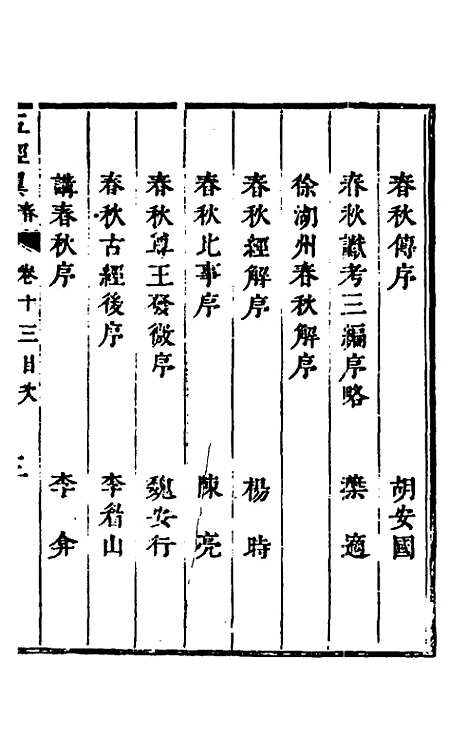 春秋傳序 胡安國
春秋讞考三編序略 葉適
徐湖州春秋解序
春秋經解序 楊時
春秋比事序 陳亮
春秋尊王發微序 魏安行
春秋古經後序 李眉山
講春秋序 李弇
五經翼春 卷十三目次 三